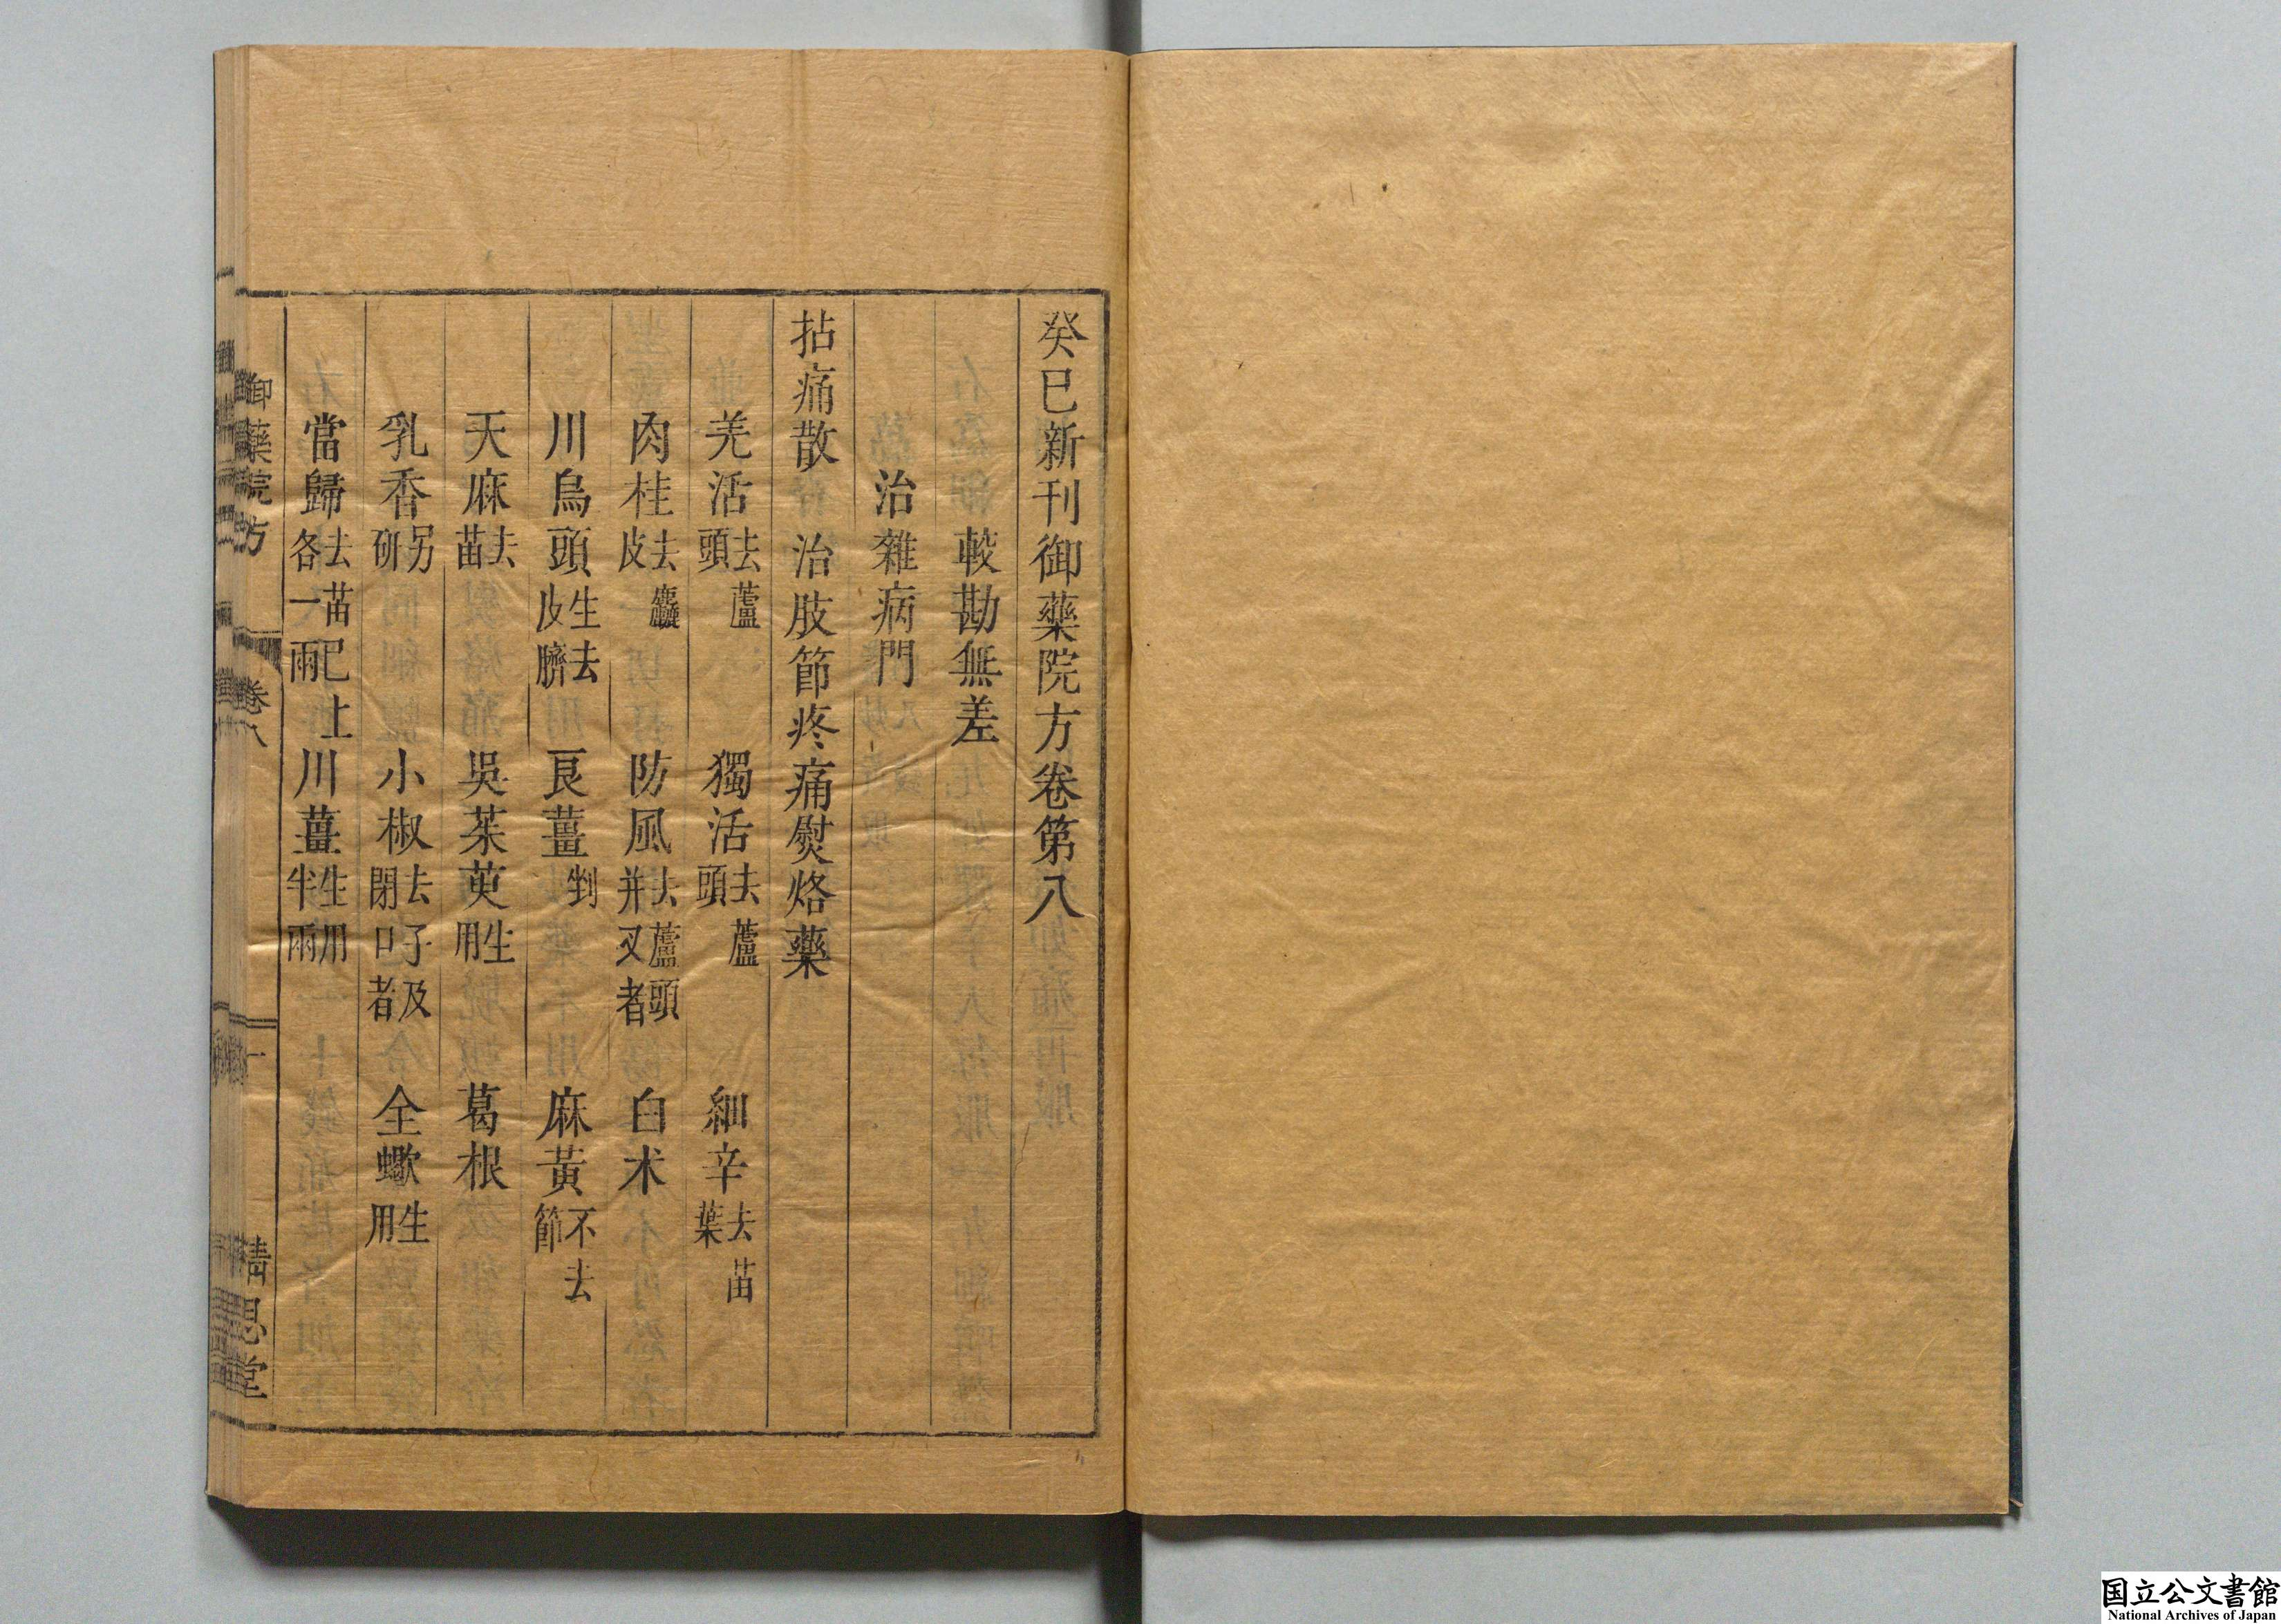 癸巳新刊御藥院方卷第八
較勘無差
治雜病門
拈痛散 治肢節疼痛熨烙藥
羌活去蘆頭 獨活去蘆頭 細辛去苗葉
肉桂去麤皮 防風去蘆頭并叉者 白术
川烏頭生去皮臍 良薑剉 麻黃不去節
天麻去苗 吳茱萸生用 葛根
乳香另研 小椒去子及閉口者 全蠍生用
當歸去苗已上各一兩 川薑生用半兩
御藥院方 卷八 一 精思堂
国立公文書館
National Archives of Japan